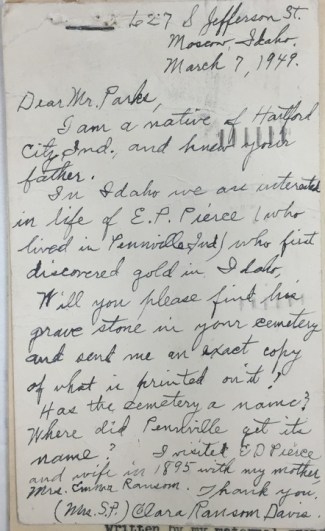 627 S Jefferson St.
Moscow, Idaho.
March 7, 1949.
Dear Mr. Parks,
I am a native of Hartford
City, Ind., and knew your
father.
In Idaho we are interested
in life of E.P. Pierce (who
lived in Pennville, Ind) who first
discovered gold in Idaho,
Will you please find his
grave stone in your cemetery
and send me an exact copy
of what is printed on it?
Has the cemetery a name?
Where did Pennville get its
name? I visited E D Pierce
and wife in 1895 with my mother,
Mrs. Emma Ransom. Thank you.
(Mrs. S.P.) Clara Ransom Davis.
Written by my